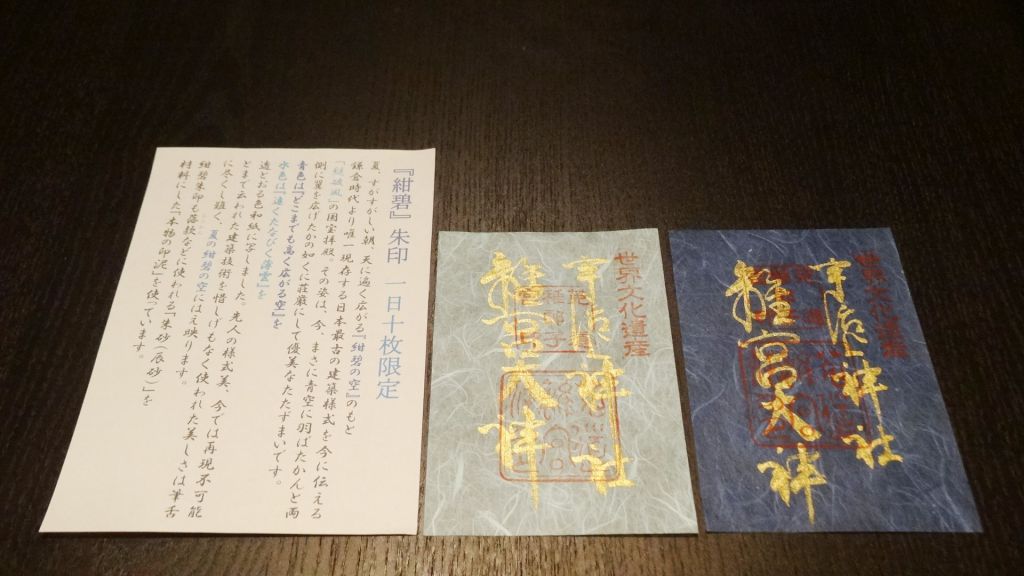 『紺碧』朱印 一日十枚限定
夏、すがすがしい朝、天に遍く広がる『紺碧の空』のもと
鎌倉時代より唯一現存する日本最古の建築様式を今に伝える
「縋破風」の国宝拝殿。その姿は、今、まさに青空に羽ばたかんと両
側に翼を広げたかの如くに荘厳にして優美なたたずまいです。
青色は『どこまでも高く広がる空』を
水色は『遠くたなびく薄雲』を
透とおる色和紙に写しました。先人の様式美、今では再現不可能
とまで云われた建築技術を惜しげもなく使われた美しさは筆舌
に尽くし難く、夏の紺碧の空にはえ映ります。
紺碧朱印も落款などに使われる「朱砂(辰砂)」を
材料にした『本物の印泥』を使っています。
世界文化遺産
宇治上神社
離宮大神
世界文化遺産
宇治上神社
離宮大神